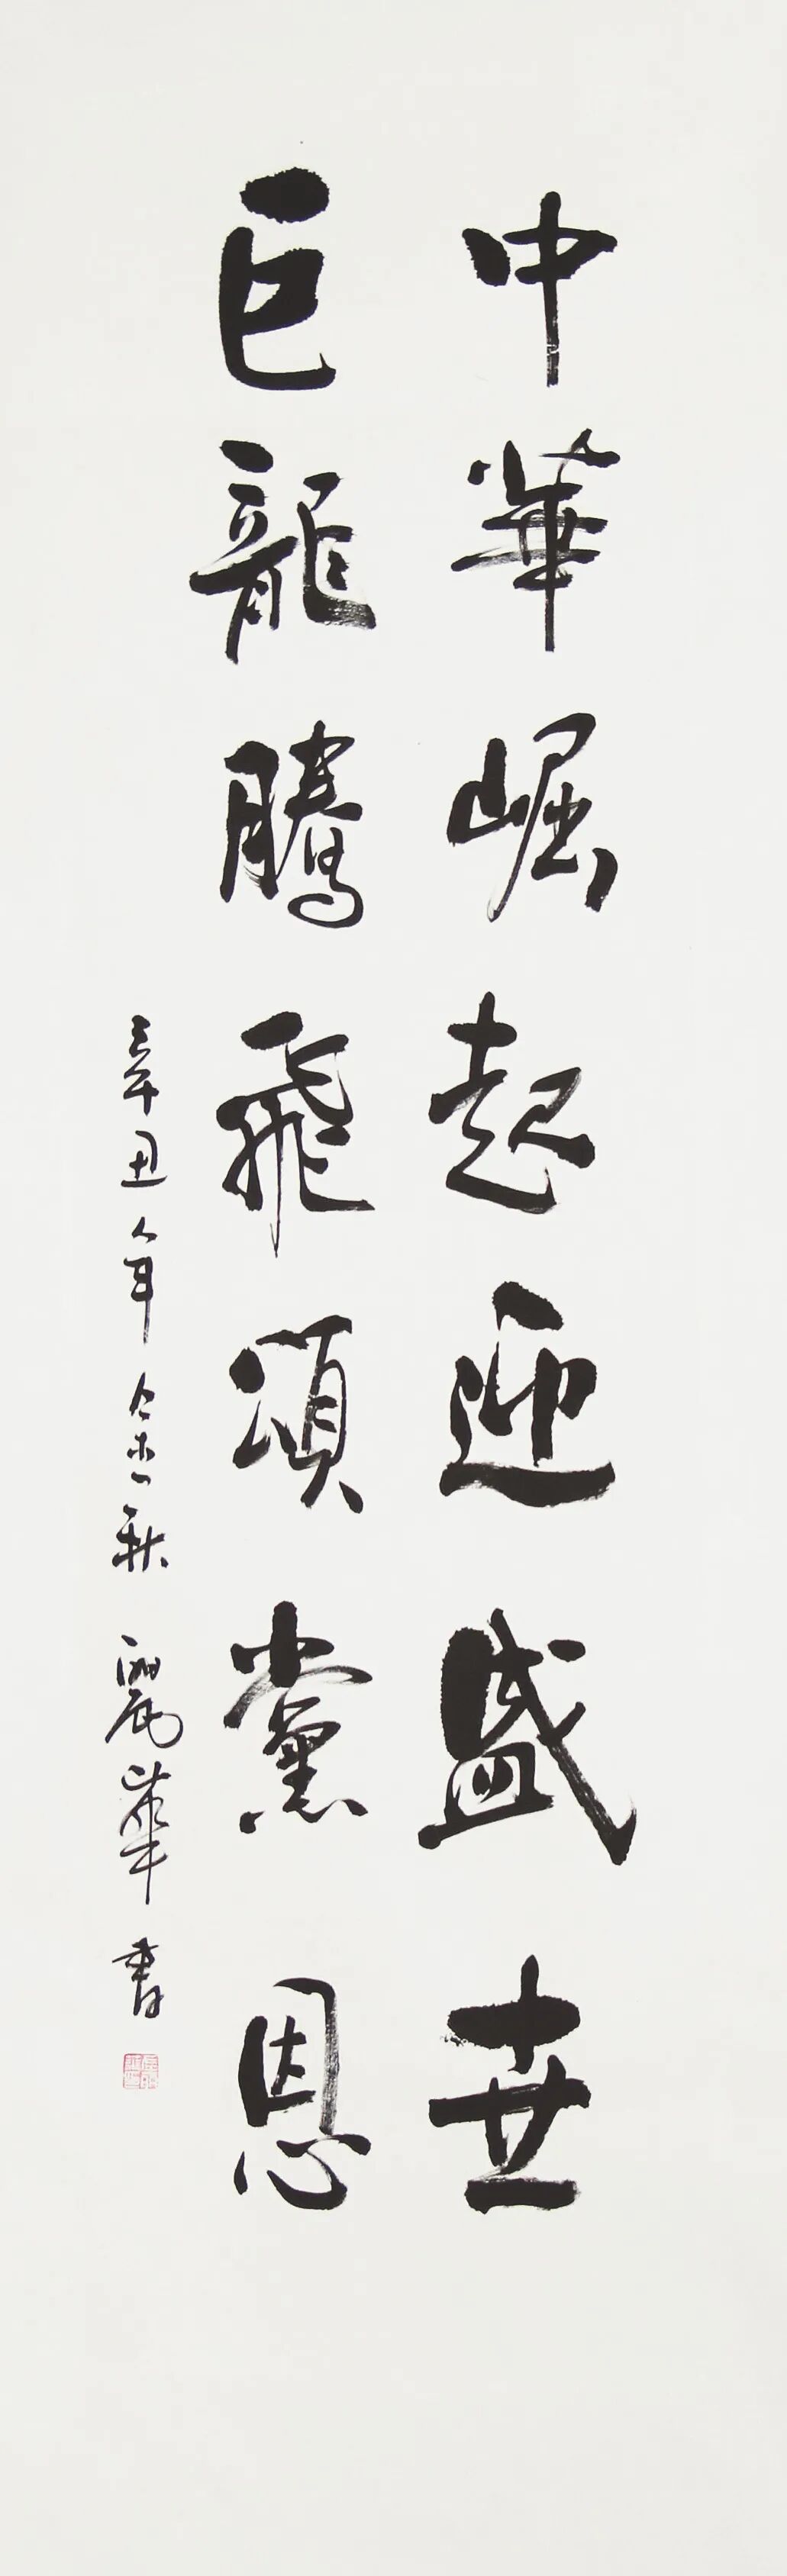 中華崛起迎盛世
巨龍騰飛頌黨恩
辛丑年金秋 麗華書